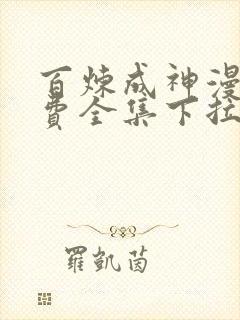 百炼成神漫
费全集下拉
羅凱茵